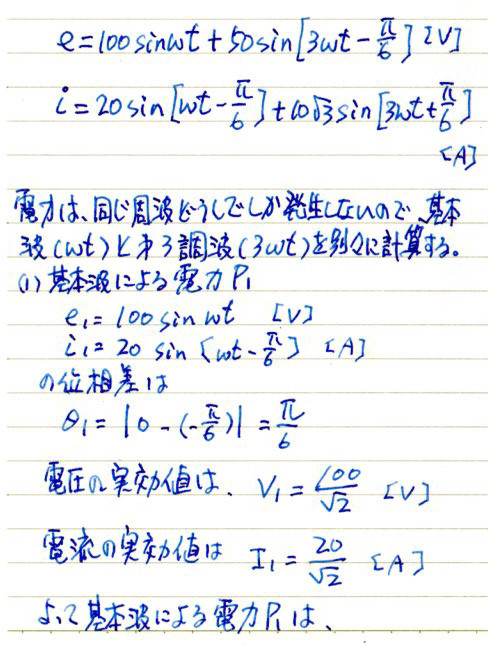 e=100sinωt+50sin[3ωt-π/6] [V]
i=20sin[ωt-π/6]+10√3sin[3ωt+π/6]
[A]
電力は、同じ周波どうしでしか発生しないので、基本
波(ωt)と第3調波(3ωt)を別々に計算する。
(1) 基本波による電力P₁
e₁=100sinωt [V]
i₁=20 sin[ωt-π/6] [A]
の位相差は
θ₁=|0-(-π/6)|=π/6
電圧の実効値は、V₁=100/√2 [V]
電流の実効値は I₁=20/√2 [A]
よって基本波による電力P₁は、